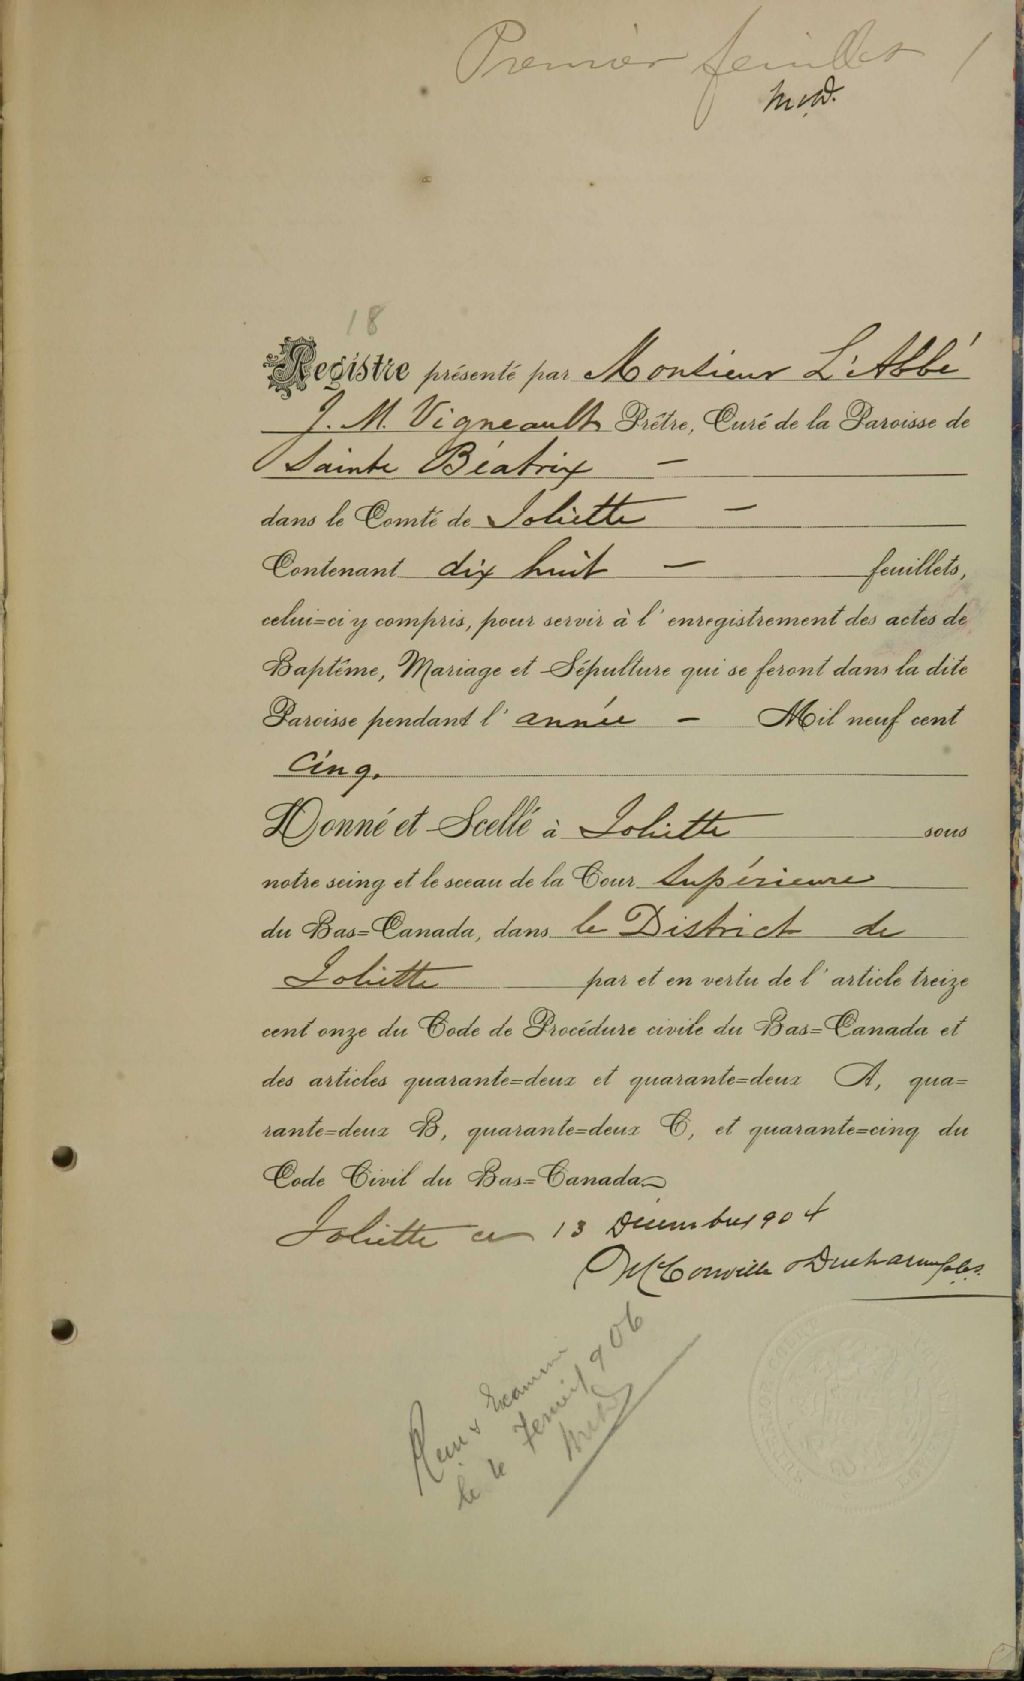 Premier feuillet 1
McD.
18
Registre présenté par Monsieur L'Abbé
J. M. Vigneault Prêtre, Curé de la Paroisse de
Sainte Béatrix —
dans le Comté de Joliette —
Contenant dix huit — feuillets,
celui=ci y compris, pour servir à l'enregistrement des actes de
Baptême, Mariage et Sépulture qui se feront dans la dite
Paroisse pendant l'année — Mil neuf cent
cinq.
Donné et Scellé à Joliette sous
notre seing et le sceau de la Cour Supérieure
du Bas=Canada, dans le District de
Joliette par et en vertu de l'article treize
cent onze du Code de Procédure civile du Bas=Canada et
des articles quarante=deux et quarante=deux A, qua=
rante=deux B, quarante=deux C, et quarante=cinq du
Code Civil du Bas=Canada
Joliette ce 13 Décembre 1904
McConville & Ducharme
& Examiné
le Fevrier 1906
McD